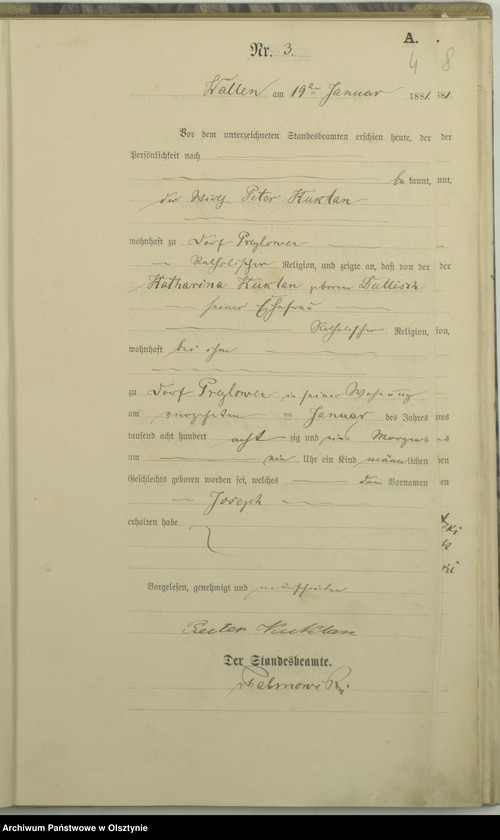 A.
Nr. 3.
4 8
Wallen am 19ten Januar 1881. 81.
Vor dem unterzeichneten Standesbeamten erschien heute, der der
Persönlichkeit nach
be kannt, nnt,
der Wirth Peter Kuklan
wohnhaft zu Dorf Preylowen
Katholischer Religion, und zeigte an, daß von der der
Katharina Kuklan geborenen Dullisch
seiner Ehefrau
Katholischer Religion, ion,
wohnhaft bei ihm
zu Dorf Preylowen in seiner Wohnung
am vierzehnten Januar des Jahres res
tausend acht hundert acht zig und eins Morgens
um ein Uhr ein Kind männlichen hen
Geschlechts geboren worden sei, welches den Vornamen en
Joseph
erhalten habe
Vorgelesen, genehmigt und unterschrieben
Peter Kuklan
Der Standesbeamte.
Palmowski
Archiwum Państwowe w Olsztynie